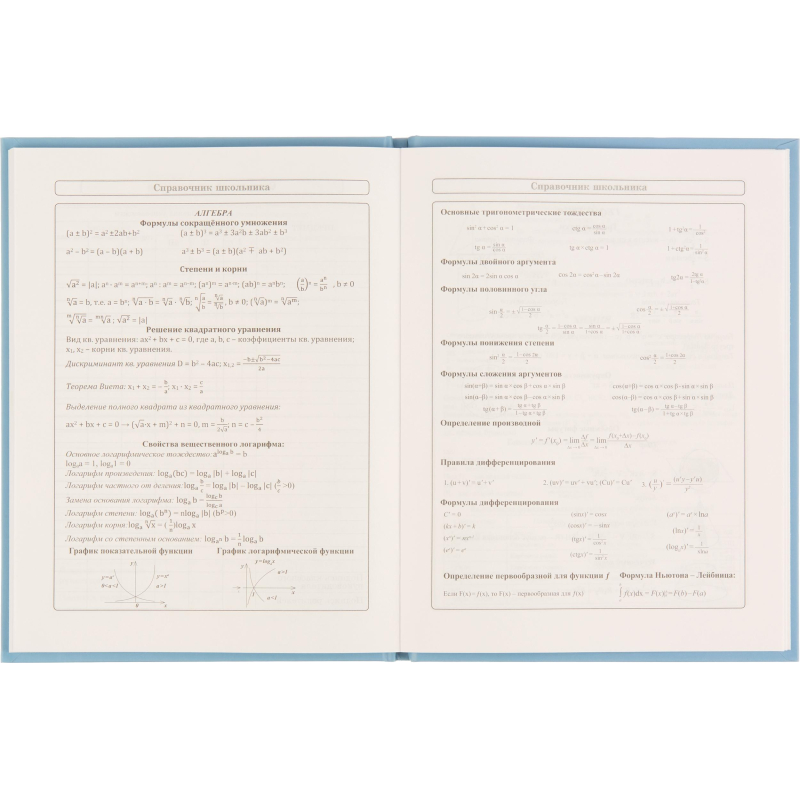 Справочник школьника
АЛГЕБРА
Формулы сокращённого умножения
(a ± b)² = a² ±2ab+b² (a ± b)³ = a³ ± 3a²b ± 3ab² ± b³
a² – b² = (a – b)(a + b) a³ ± b³ = (a ± b)(a² ∓ ab + b²)
Степени и корни
√a² = |a|; aⁿ · aᵐ = aⁿ⁺ᵐ; aⁿ : aᵐ = aⁿ⁻ᵐ; (aⁿ)ᵐ = aⁿ·ᵐ; (ab)ⁿ = aⁿbⁿ; (a/b)ⁿ = aⁿ/bⁿ , b ≠ 0
ⁿ√a = b, т.е. a = bⁿ; ⁿ√a · b = ⁿ√a · ⁿ√b; ⁿ√a/b = ⁿ√a/ⁿ√b, b ≠ 0; (ⁿ√a)ᵐ = ⁿ√aᵐ;
ᵐ√ⁿ√a = ᵐⁿ√a ; √a² = |a|
Решение квадратного уравнения
Вид кв. уравнения: ax² + bx + c = 0, где a, b, c – коэффициенты кв. уравнения;
x₁, x₂ – корни кв. уравнения.
Дискриминант кв. уравнения D = b² – 4ac; x₁,₂ = –b±√b²–4ac/2a
Теорема Виета: x₁ + x₂ = – b/a; x₁ · x₂ = c/a
Выделение полного квадрата из квадратного уравнения:
ax² + bx + c = 0 → (√a·x + m)² + n = 0, m = b/2√a; n = c – b²/a
Свойства вещественного логарифма:
Основное логарифмическое тождество: a^logₐ b = b
logₐa = 1, logₐ1 = 0
Логарифм произведения: logₐ(bc) = logₐ |b| + logₐ |c|
Логарифм частного от деления: logₐ b/c = logₐ |b| – logₐ |c| (b/c >0)
Замена основания логарифма: logₐ b = log꜀ b/log꜀ a
Логарифм степени: logₐ( bⁿ) = nlogₐ |b| (bᵖ>0)
Логарифм корня logₐ ⁿ√x = (1/n)logₐ x
Логарифм со степенным основанием: logₐⁿ b = 1/n logₐ b
График показательной функции График логарифмической функции
y y=aˣ 0<a<1 y=aˣ a>1 0 x
y y=logₐx a>1 1 x 0<a<1
Справочник школьника
Основные тригонометрические тождества
sin² α + cos² α = 1 ctg α = cos α/sin α 1 + tg² α = 1/cos²
tg α = sin α/cos α tg α · ctg α = 1 1 + ctg² α = 1/sin²
Формулы двойного аргумента
sin 2α = 2sin α cos α cos 2α = cos² α – sin 2α tg2α = 2tg α/1–tg²α
Формулы половинного угла
sin α/2 = ±√1–cos α/2 cos α/2 = ±√1+cos α/2
tg α/2 = 1–cos α/sin α = sin α/1+cos α = ±√1–cos α/1+cos α
Формулы понижения степени
sin² α/2 = 1–cos 2α/2 cos² α/2 = 1+cos 2α/2
Формулы сложения аргументов
sin(α+β) = sin α·cos β + cos α · sin β cos(α+β) = cos α · cos β– sin α · sin β
sin(α–β) = sin α·cos β – cos α · sin β cos(α–β) = cos α · cos β + sin α · sin β
tg(α+β) = tg α+tg β/1–tg α·tg β tg(α–β) = tg α–tg β/1+tg α·tg β
Определение производной
y′ = f′(x₀) = lim Δf/Δx = lim f(x₀+Δx)–f(x₀)/Δx
Правила дифференцирования
1. (u + v)′ = u′ + v′ 2. (uv)′= uv′ + vu′, (Cu)′ = Cu′ 3. (u/v)′ = (u′v–v′u)/v²
Формулы дифференцирования
C′ = 0 (sinx)′ = cosx (aˣ)′ = aˣ×lna
(kx + b)′ = k (cosx)′ = –sinx (lnx)′ = 1/x
(xⁿ)′ = nxⁿ⁻¹ (tgx)′ = 1/cos²x (logₐx)′ = 1/xlna
(eˣ)′ = eˣ (ctgx)′ = 1/sin²x
Определение первообразной для функции f Формула Ньютона – Лейбница:
Если F(x) = f(x), то F(x) – первообразная для f(x) ∫f(x)dx = F(x)| = F(b) – F(a)